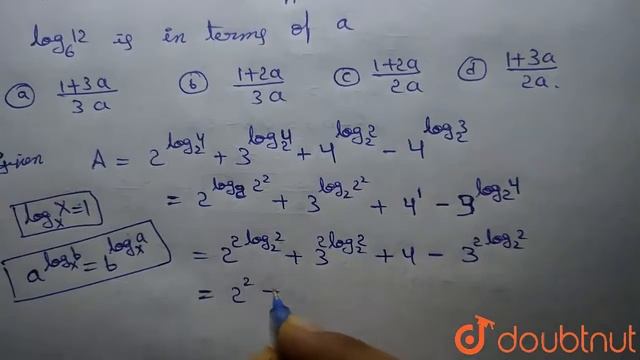 log₆12 is in terms of a
(a) (1+3a)/(3a) (b) (1+2a)/(3a) (c) (1+2a)/(2a) (d) (1+3a)/(2a).
A = 2^(log₂4) + 3^(log₂4) + 4^(log₂2) - 4^(log₂3)
= 2^(log₂2²) + 3^(log₂2²) + 4¹ - 3^(log₂4)
log_x x = 1
= 2^(2log₂2) + 3^(2log₂2) + 4 - 3^(2log₂2)
a^(log_x b) = b^(log_x a)
= 2² -
doubtnut